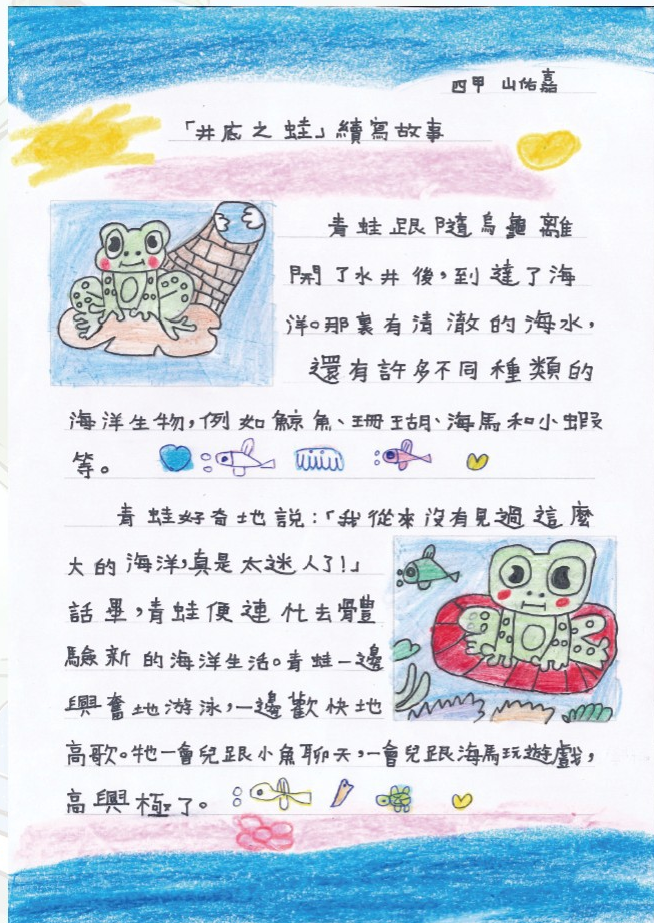 四甲 山佑嘉
「井底之蛙」續寫故事
青蛙跟隨烏龜離
開了水井後,到達了海
洋。那裏有清澈的海水,
還有許多不同種類的
海洋生物,例如鯨魚、珊瑚、海馬和小蝦
等。
青蛙好奇地說:「我從來沒有見過這麼
大的海洋,真是太迷人了!」
話畢,青蛙便連忙去體
驗新的海洋生活。青蛙一邊
興奮地游泳,一邊歡快地
高歌。牠一會兒跟小魚聊天,一會兒跟海馬玩遊戲,
高興極了。